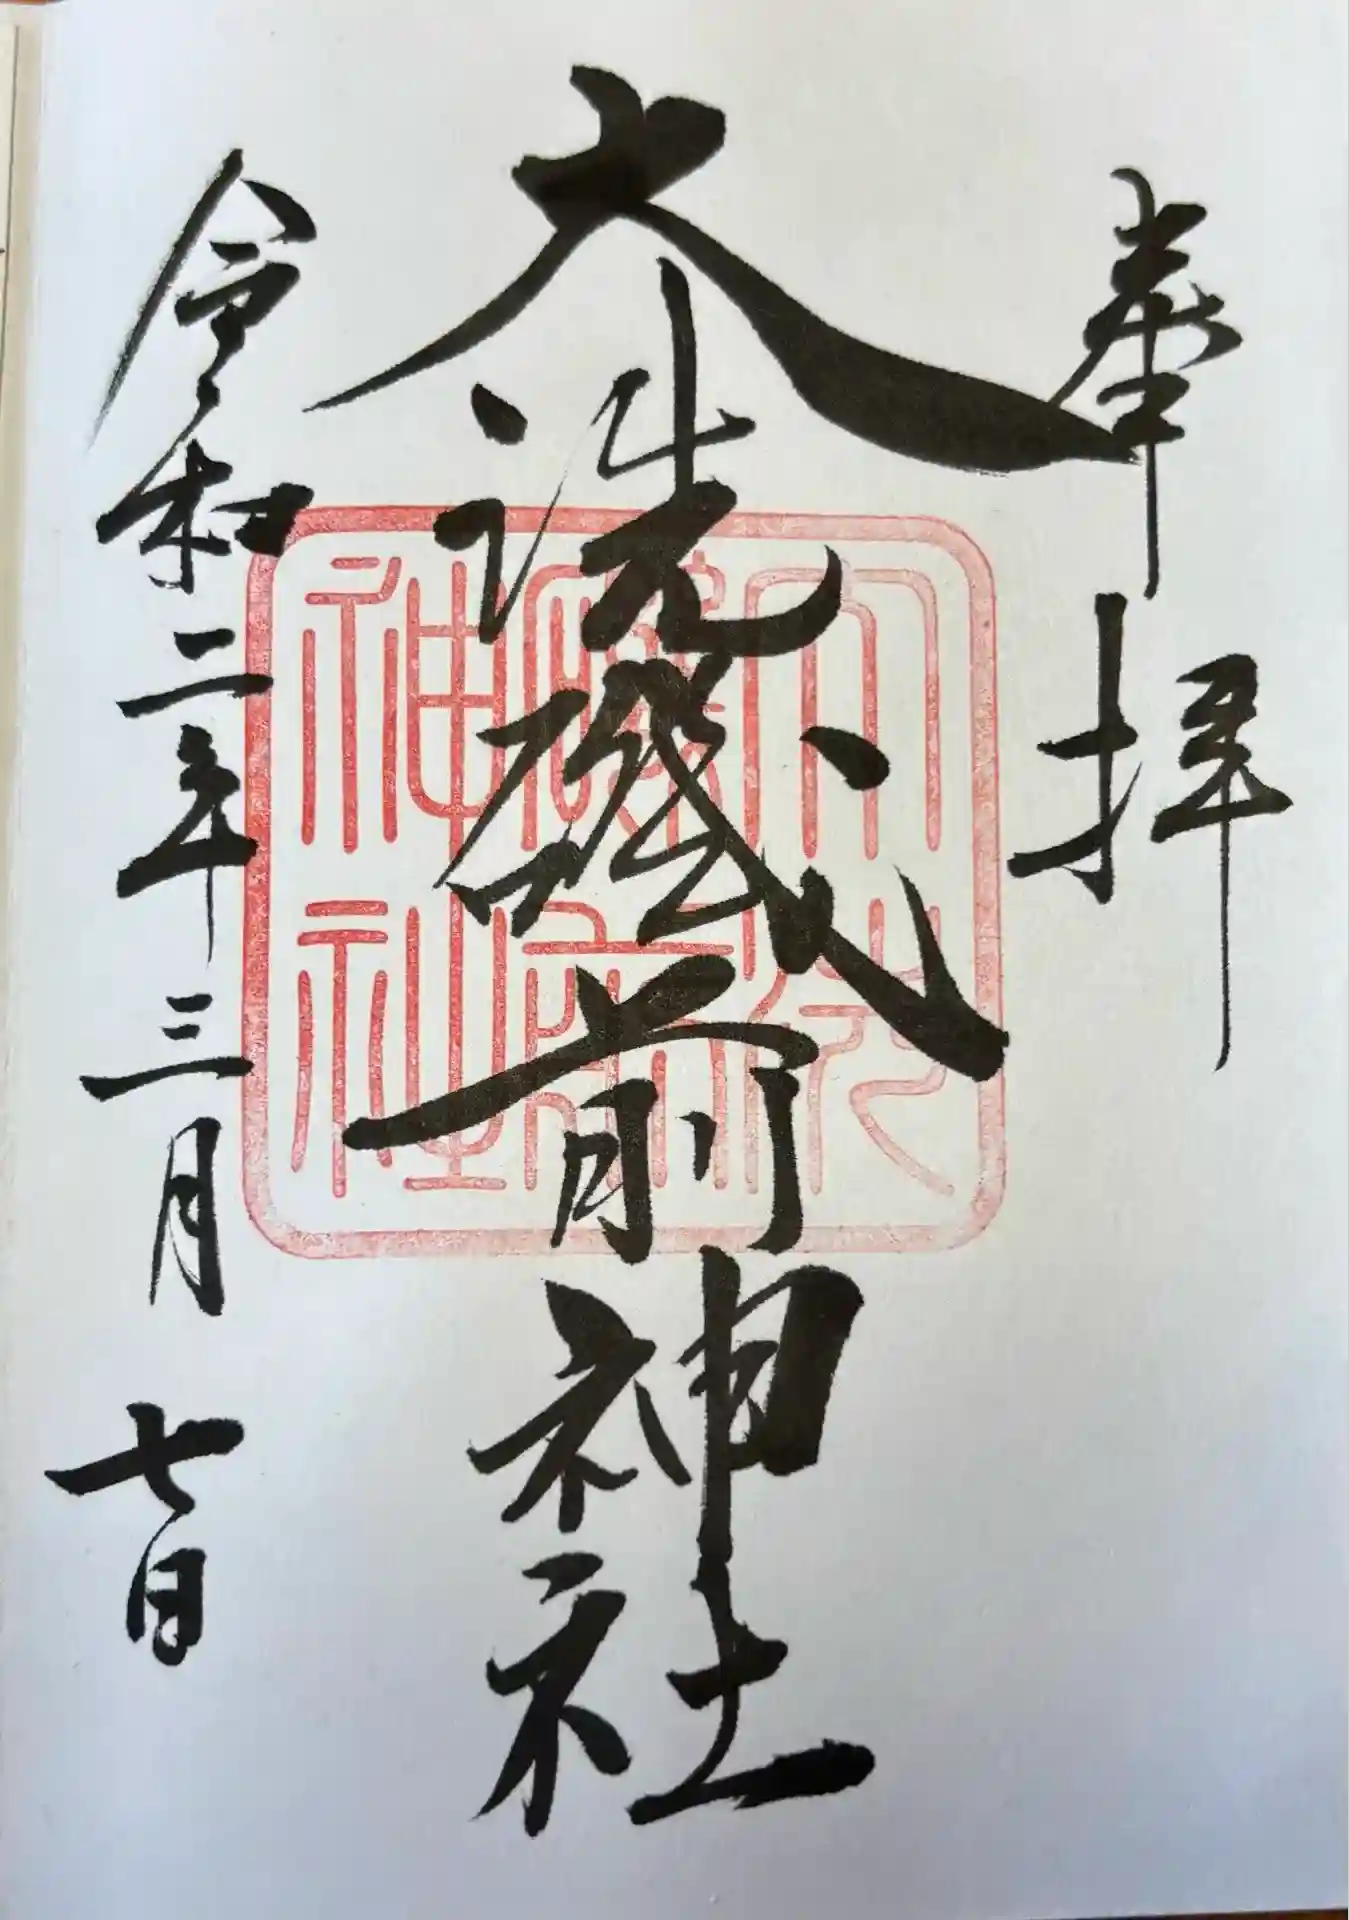 奉拝
大洗磯前神社
大洗
磯前
神社
令和二年三月七日